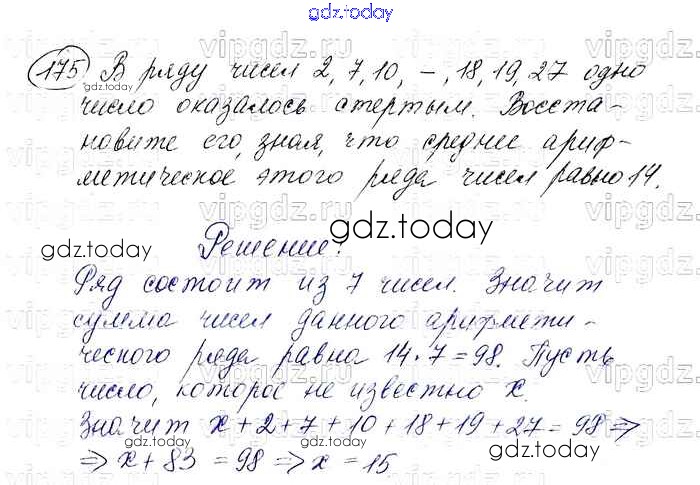 gdz.today
175 В ряду чисел 2, 7, 10, –, 18, 19, 27 одно
число оказалось стертым. Восста-
новите его, зная, что среднее ариф-
метическое этого ряда чисел равно 14.
Решение:
Ряд состоит из 7 чисел. Значит
сумма чисел данного арифмети-
ческого ряда равна 14·7=98. Пусть
число, которое не известно x.
Значит x+2+7+10+18+19+27=98⇒
⇒x+83=98⇒x=15